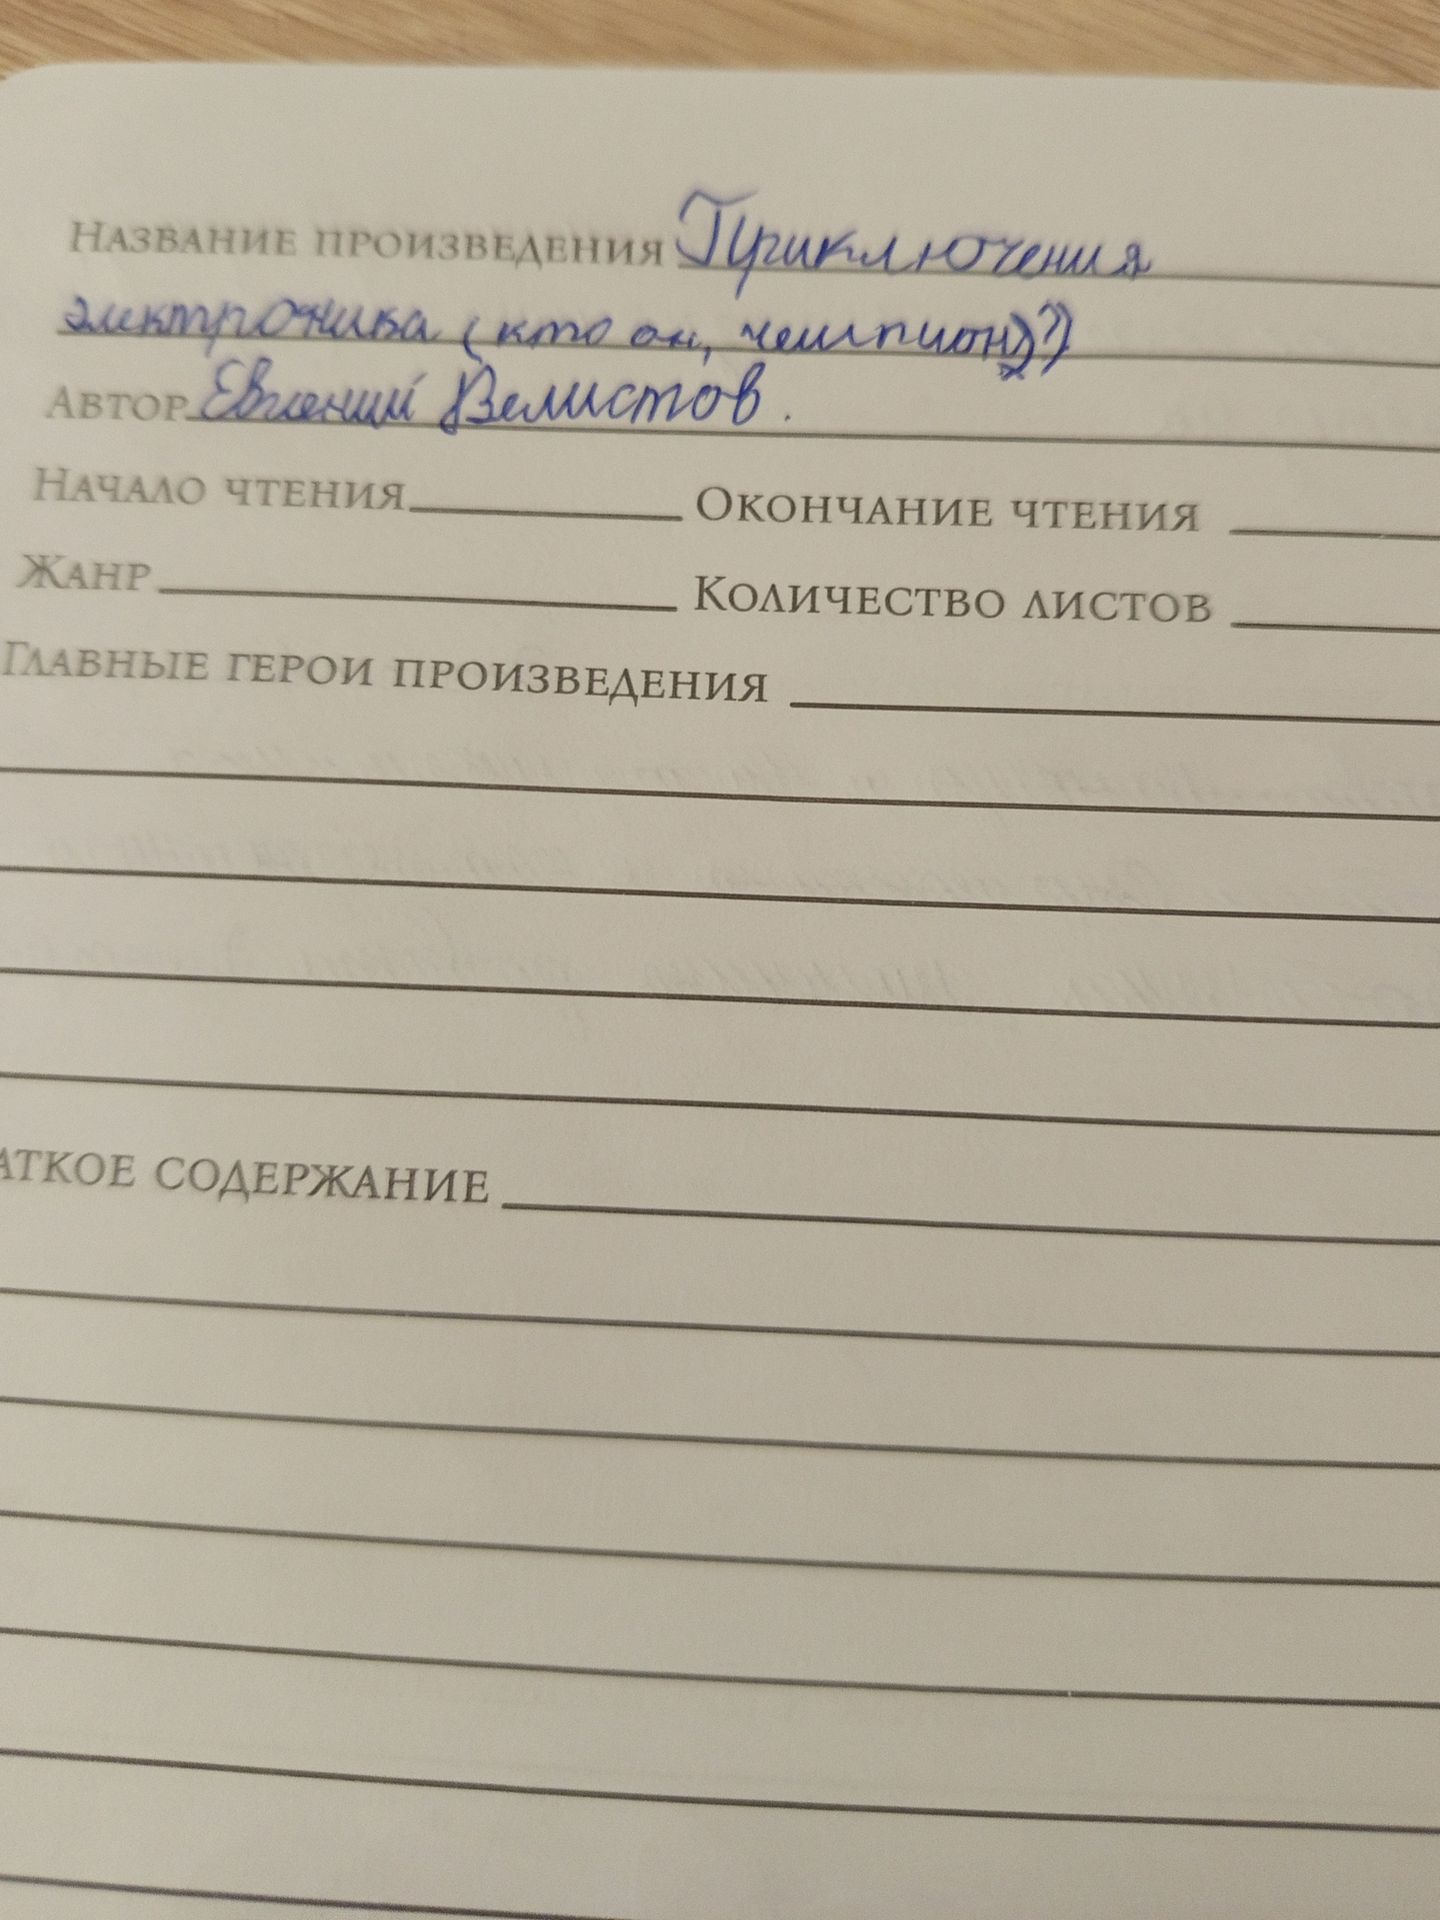 Название произведения Приключения
электроника (кто он, чемпион?)
Автор Евгений Велистов.
Начало чтения Окончание чтения
Жанр Количество листов
Главные герои произведения
аткое содержание